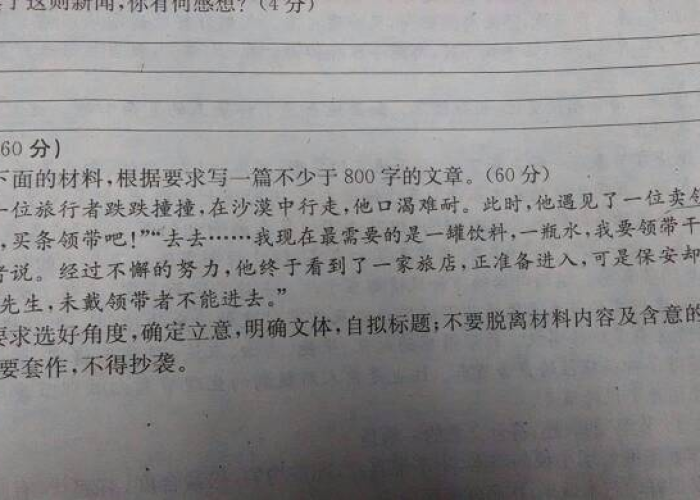 了这则新闻,你有何感想?(4分)
60分)
下面的材料,根据要求写一篇不少于800字的文章。(60分)
一位旅行者跌跌撞撞,在沙漠中行走,他口渴难耐。此时,他遇见了一位卖领
,买条领带吧!”“去去……我现在最需要的是一罐饮料,一瓶水,我要领带干
者说。经过不懈的努力,他终于看到了一家旅店,正准备进入,可是保安却
先生,未戴领带者不能进去。”
要求选好角度,确定立意,明确文体,自拟标题;不要脱离材料内容及含意的
要套作,不得抄袭。